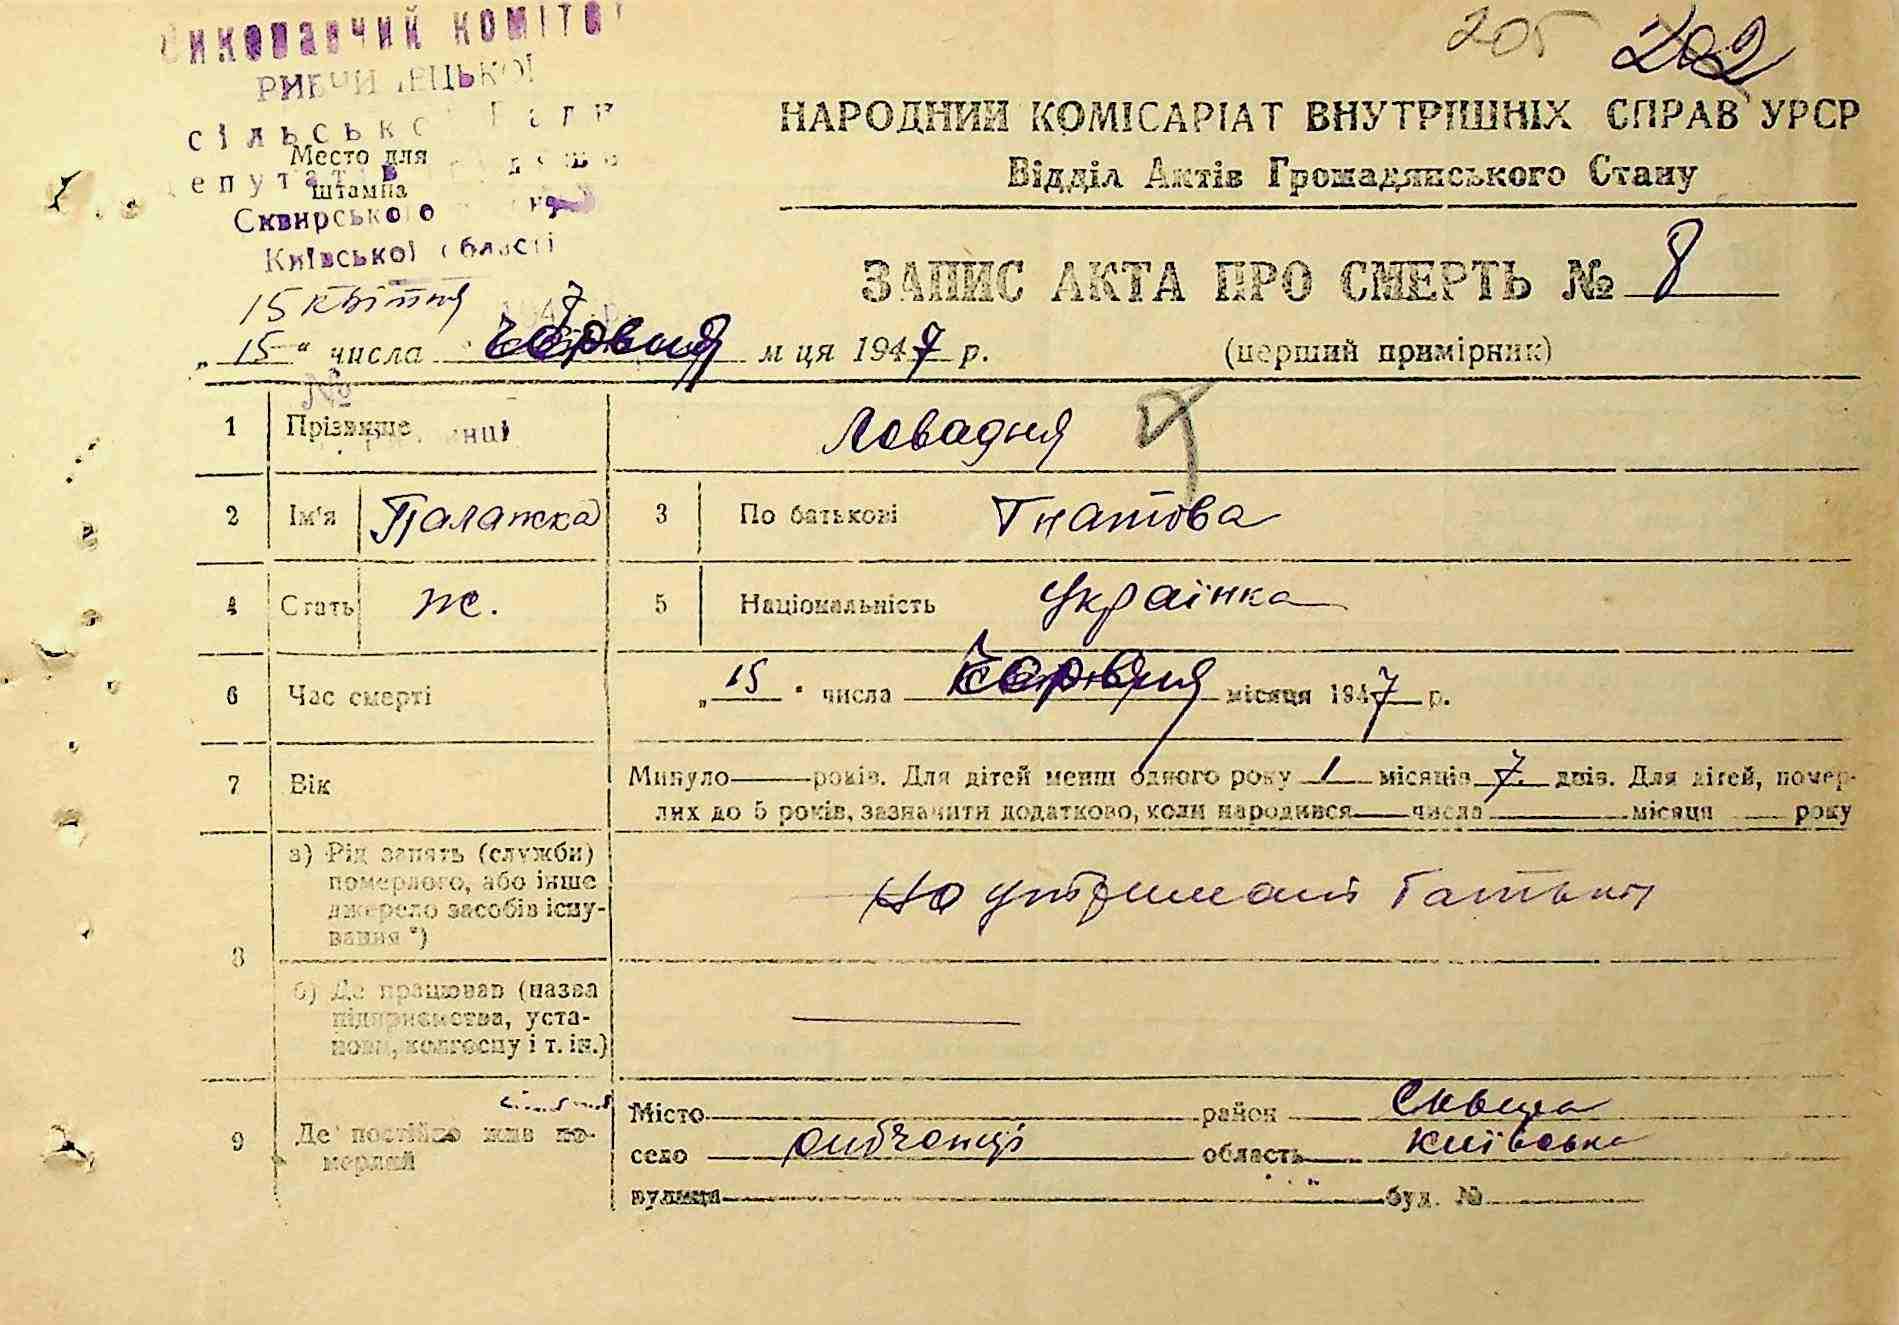 205 202
Виконавчий комітет
РИБЧИНЕЦЬКОЇ
сільської Ради
Место для
депутатів
штампа
Сквирського
Київської області
15 квітня 1947 р.
НАРОДНИЙ КОМІСАРІАТ ВНУТРІШНІХ СПРАВ УРСР
Відділ Актів Громадянського Стану
ЗАПИС АКТА ПРО СМЕРТЬ № 8
„15“ числа червня м ця 1947 р.
(перший примірник)
№
1 Прізвище Левадня
2 Ім'я Палажка 3 По батькові Гнатова
4 Стать ж. 5 Національність українка
6 Час смерті „15“ числа червня місяця 1947 р.
7 Вік Минуло — років. Для дітей менш одного року 1 місяців 7 днів. Для дітей, помер-
лих до 5 років, зазначити додатково, коли народився числа місяця року
8 а) Рід занять (служби)
померлого, або інше
джерело засобів існу-
вання *)
на утримані батька
б) Де працював (назва
підприємства, уста-
нови, колгоспу і т. ін.)
—
9 Де постійно жив по-
мерлий
Місто район Сквира
село рибченці область київська
вулиця буд. №